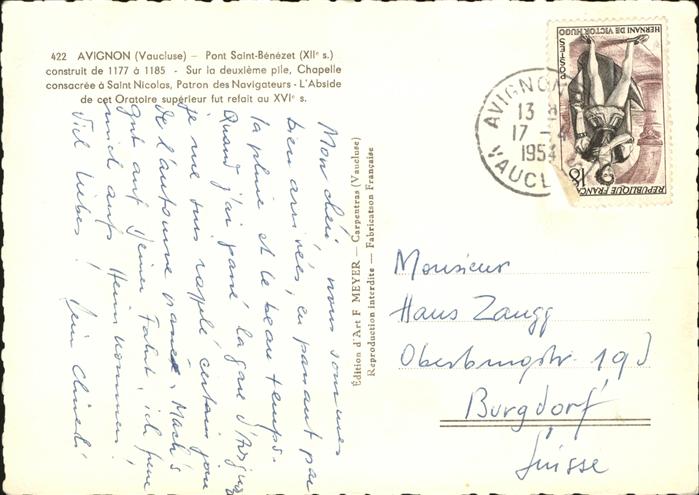 422 AVIGNON (Vaucluse) — Pont Saint-Bénézet (XIIe s.)
construit de 1177 à 1185 - Sur la deuxième pile, Chapelle
consacrée à Saint Nicolas, Patron des Navigateurs - L'Abside
de cet Oratoire supérieur fut refait au XVIe s.
Mon chéri, nous sommes
bien arrivés, en passant par
la pluie et le beau temps.
Quand j'ai passé la gare d'Avignon
je me suis rappelé certain jour
de l'automne passé. Mach's
gut auf Deiner Fahrt, ich freu
mich aufs Heimkommen!
Viel Liebes!
Édition d'Art F. MEYER — Carpentras (Vaucluse)
Reproduction interdite — Fabrication Française
AVIGNON
13 H
17 - 4
1954
VAUCL
HERNANI DE VICTOR HUGO
REPUBLIQUE FRANÇ
18F
Monsieur
Hans Zaugg
Oberburgstr. 19
Burgdorf
Suisse